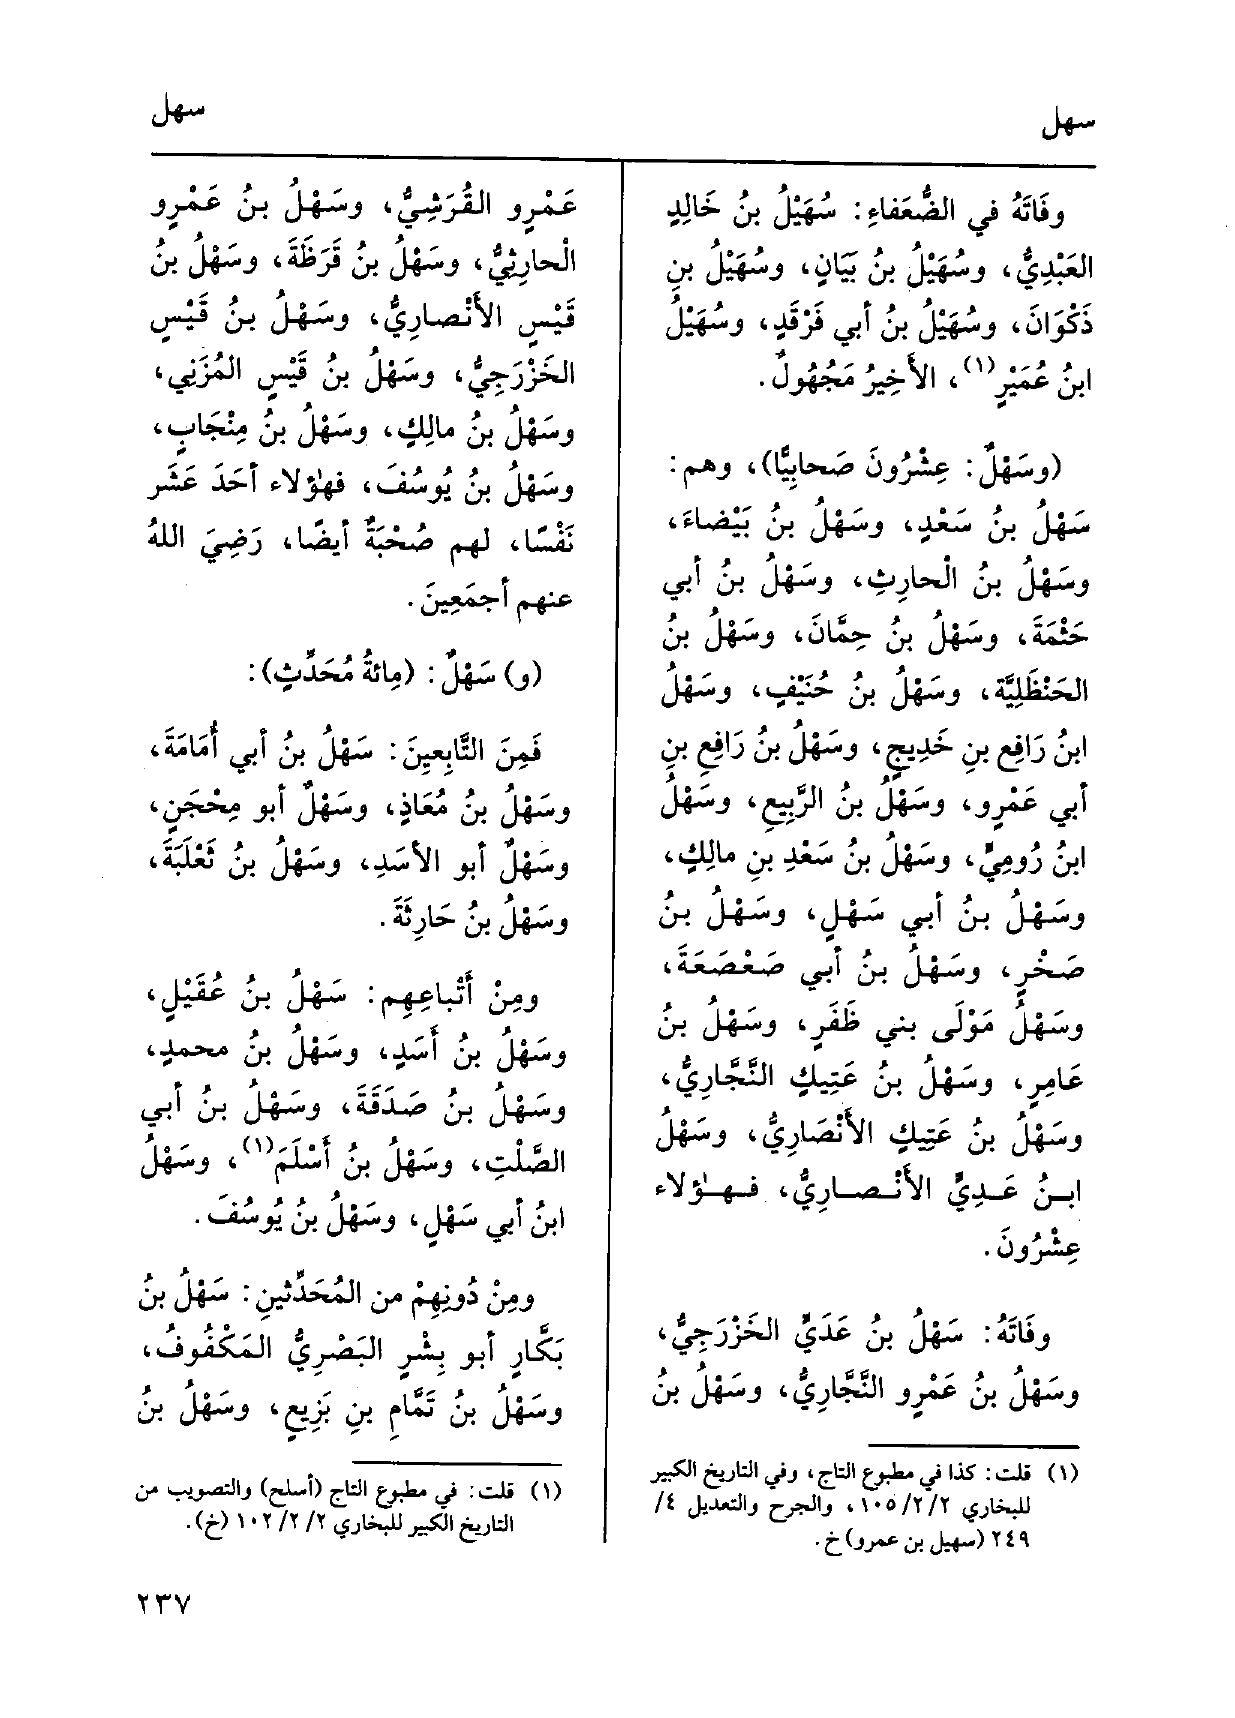 سهل
سهل
وفَاتَهُ في الضُّعَفاءِ: سُهَيْلُ بنُ خَالِدٍ
العَبْدِيُّ، وسُهَيْلُ بنُ بَيَانٍ، وسُهَيْلُ بنِ
ذَكْوَانَ، وسُهَيْلُ بنُ أبي فَرْقَدٍ، وسُهَيْلُ
ابنُ عُمَيْرٍ(١)، الأَخِيرُ مَجْهُولٌ.
(وسَهْلٌ: عِشْرُونَ صَحابِيًّا)، وهم:
سَهْلُ بنُ سَعْدٍ، وسَهْلُ بنُ بَيْضاءَ،
وسَهْلُ بنُ الْحارِثِ، وسَهْلُ بنُ أبي
حَثْمَةَ، وسَهْلُ بنُ حِمَّانَ، وسَهْلُ بنُ
الحَنْظَلِيَّة، وسَهْلُ بنُ حُنَيْفٍ، وسَهْلُ
ابنُ رَافِعِ بنِ خَدِيجٍ، وسَهْلُ بنُ رَافِعِ بنِ
أبي عَمْرٍو، وسَهْلُ بنُ الرَّبِيعِ، وسَهْلُ
ابنُ رُومِيٍّ، وسَهْلُ بنُ سَعْدِ بنِ مالِكٍ،
وسَهْلُ بنُ أبي سَهْلٍ، وسَهْلُ بنُ
صَخْرٍ، وسَهْلُ بنُ أبي صَعْصَعَةَ،
وسَهْلُ مَوْلَى بني ظَفَرٍ، وسَهْلُ بنُ
عَامِرٍ، وسَهْلُ بنُ عَتِيكٍ النَّجَّارِيُّ،
وسَهْلُ بنُ عَتِيكٍ الأَنْصَارِيُّ، وسَهْلُ
ابنُ عَدِيٍّ الأَنْصارِيُّ، فهؤلاء
عِشْرُونَ.
وفَاتَهُ: سَهْلُ بنُ عَدَيٍّ الخَزْرَجِيُّ،
وسَهْلُ بنُ عَمْرٍو النَّجَّارِيُّ، وسَهْلُ بنُ
(١) قلت: كذا في مطبوع التاج، وفي التاريخ الكبير
للبخاري ٢/٢/١٠٥، والجرح والتعديل ٤/
٢٤٩ (سهيل بن عمرو) خ.
عَمْرٍو القُرَشِيُّ، وسَهْلُ بنُ عَمْرٍو
الْحارِثِيُّ، وسَهْلُ بنُ قَرَظَةَ، وسَهْلُ بنُ
قَيْسٍ الأَنْصارِيُّ، وسَهْلُ بنُ قَيْسٍ
الخَزْرَجِيُّ، وسَهْلُ بنُ قَيْسٍ المُزَنِي،
وسَهْلُ بنُ مالِكٍ، وسَهْلُ بنُ مِنْجَابٍ،
وسَهْلُ بنُ يُوسُفَ، فهؤلاء أحَدَ عَشَر
نَفْسًا، لهم صُحْبَةٌ أيضًا، رَضِيَ اللهُ
عنهم أجمَعِينَ.
(و) سَهْلٌ: (مِائةُ مُحَدِّثٍ):
فَمِنَ التَّابِعِينَ: سَهْلُ بنُ أبي أُمَامَةَ،
وسَهْلُ بنُ مُعَاذٍ، وسَهْلٌ أبو مِحْجَنٍ،
وسَهْلٌ أبو الأسَدِ، وسَهْلُ بنُ ثَعْلَبَةَ،
وسَهْلُ بنُ حَارِثَةَ.
ومِنْ أَتْباعِهِم: سَهْلُ بنُ عُقَيْلٍ،
وسَهْلُ بنُ أَسَدٍ، وسَهْلُ بنُ محمدٍ،
وسَهْلُ بنُ صَدَقَةَ، وسَهْلُ بنُ أبي
الصَّلْتِ، وسَهْلُ بنُ أَسْلَمَ(١)، وسَهْلُ
ابنُ أبي سَهْلٍ، وسَهْلُ بنُ يُوسُفَ.
ومِنْ دُونِهِمْ من المُحَدِّثين: سَهْلُ بنُ
بَكَّارٍ أبو بِشْرٍ البَصْرِيُّ المَكْفُوفُ،
وسَهْلُ بنُ تَمَّامِ بنِ بَزِيعٍ، وسَهْلُ بنُ
(١) قلت: في مطبوع التاج (أسلح) والتصويب من
التاريخ الكبير للبخاري ٢/٢/١٠٢ (خ).
٢٣٧